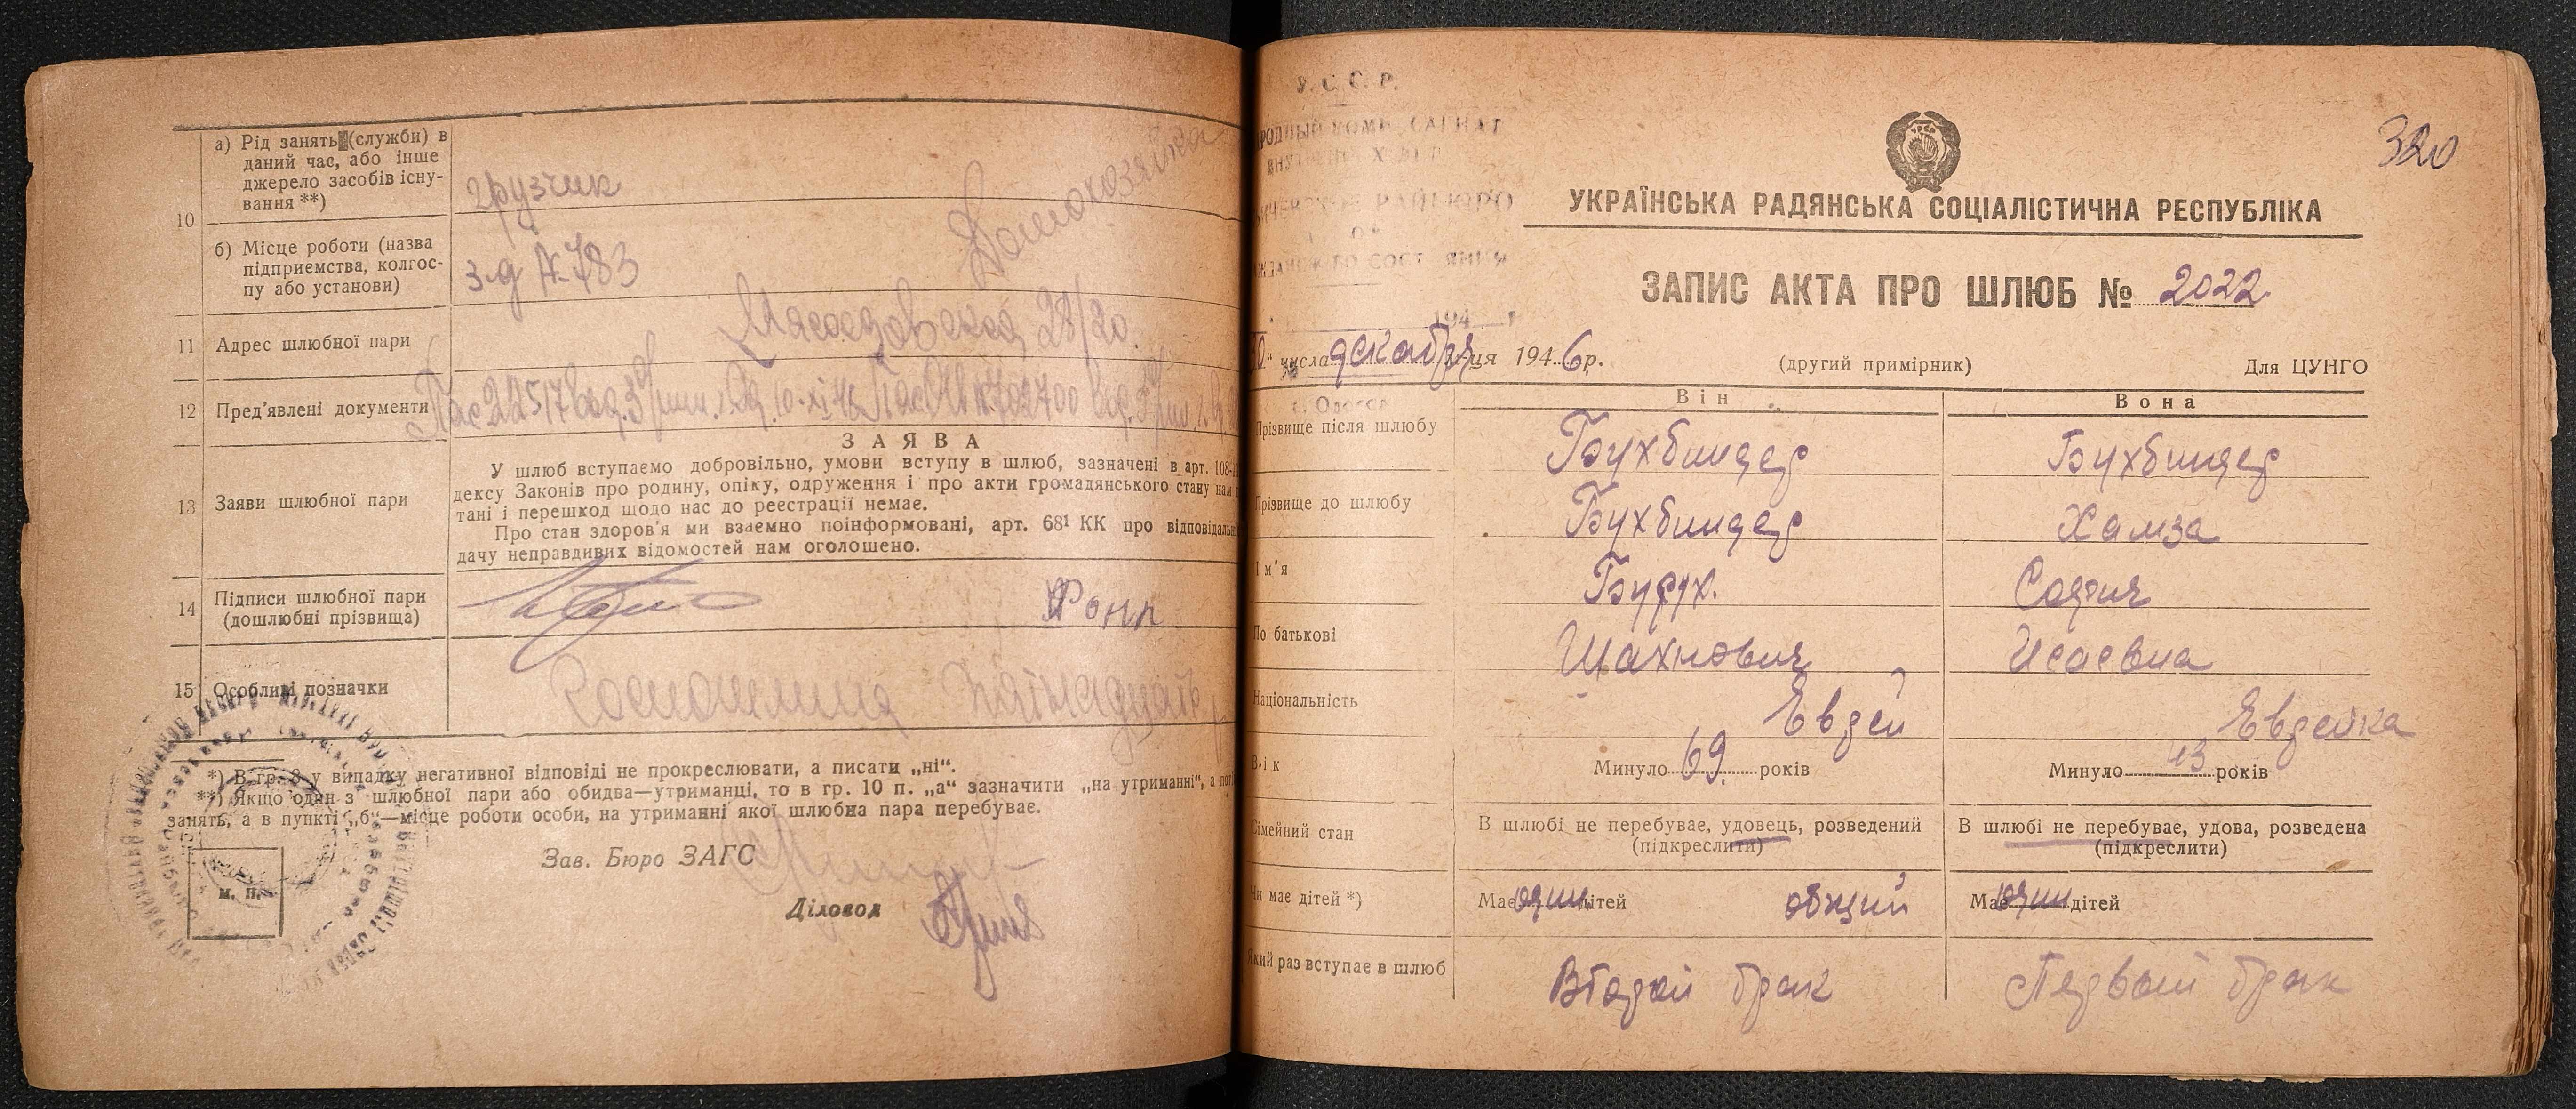 10
а) Рід занять (служби) в
даний час, або інше
джерело засобів існу-
вання **)
грузчик
Домохозяйка
б) Місце роботи (назва
підприємства, колгос-
пу або установи)
з-д А-783
11 Адрес шлюбної пари
Мясоедовская 28/20.
12 Пред'явлені документи
ЗАЯВА
13 Заяви шлюбної пари
У шлюб вступаємо добровільно, умови вступу в шлюб, зазначені в арт. 108-
дексу Законів про родину, опіку, одруження і про акти громадянського стану нам
тані і перешкод щодо нас до реєстрації немає.
Про стан здоров'я ми взаємно поінформовані, арт. 68¹ КК про відповідаль
дачу неправдивих відомостей нам оголошено.
14 Підписи шлюбної пари
(дошлюбні прізвища)
15 Особливі позначки
*) В гр. 8 у випадку негативної відповіді не прокреслювати, а писати „ні“.
**) Якщо один з шлюбної пари або обидва—утриманці, то в гр. 10 п. „а“ зазначити „на утриманні“, а
занять, а в пункті „б“—місце роботи особи, на утриманні якої шлюбна пара перебуває.
Зав. Бюро ЗАГС
Діловод
м. п.
У. С. С. Р.
РАЙБЮРО
г. Одесса
320
УКРАЇНСЬКА РАДЯНСЬКА СОЦІАЛІСТИЧНА РЕСПУБЛІКА
ЗАПИС АКТА ПРО ШЛЮБ № 2022
30 " числа декабря м-ця 1946 р.
(другий примірник)
Для ЦУНГО
Він
Вона
Прізвище після шлюбу
Бухбиндер
Бухбиндер
Прізвище до шлюбу
Бухбиндер
Хамза
Ім'я
Бурух.
София
По батькові
Шахнович
Исаевна
Національність
Еврей
Еврейка
Вік
Минуло 69. років
Минуло 43 років
Сімейний стан
В шлюбі не перебуває, удовець, розведений
(підкреслити)
В шлюбі не перебуває, удова, розведена
(підкреслити)
Чи має дітей *)
Має один дітей общий
Має один дітей
Який раз вступає в шлюб
Второй брак
Первый брак